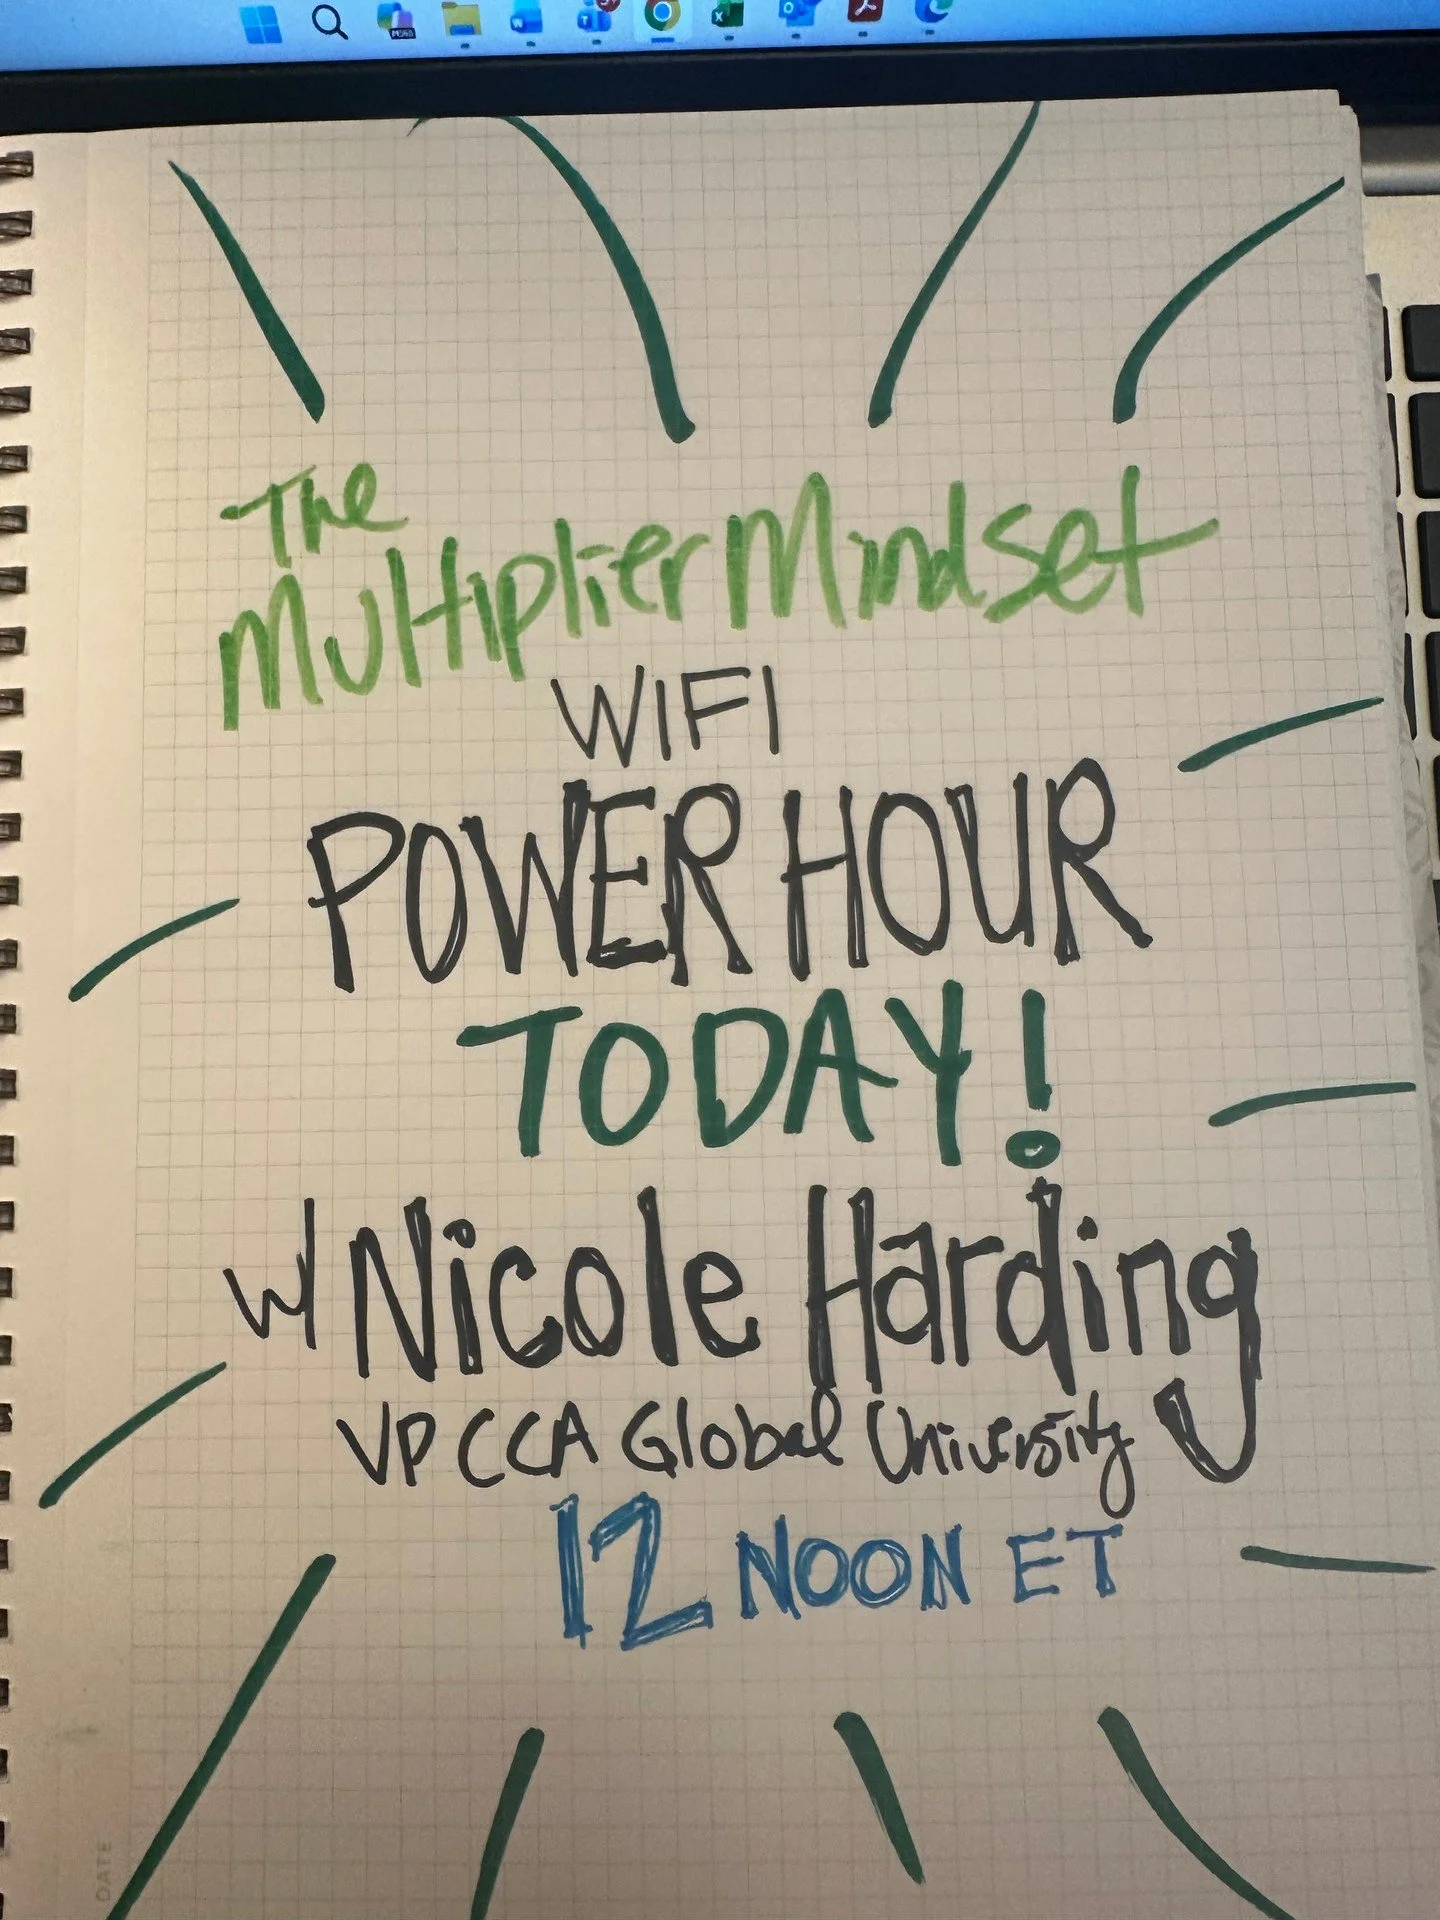 The
Multiplier Mindset
WIFI
POWER HOUR
TODAY!
w/ Nicole Harding
VP CCA Global University
12 NOON ET
DATE